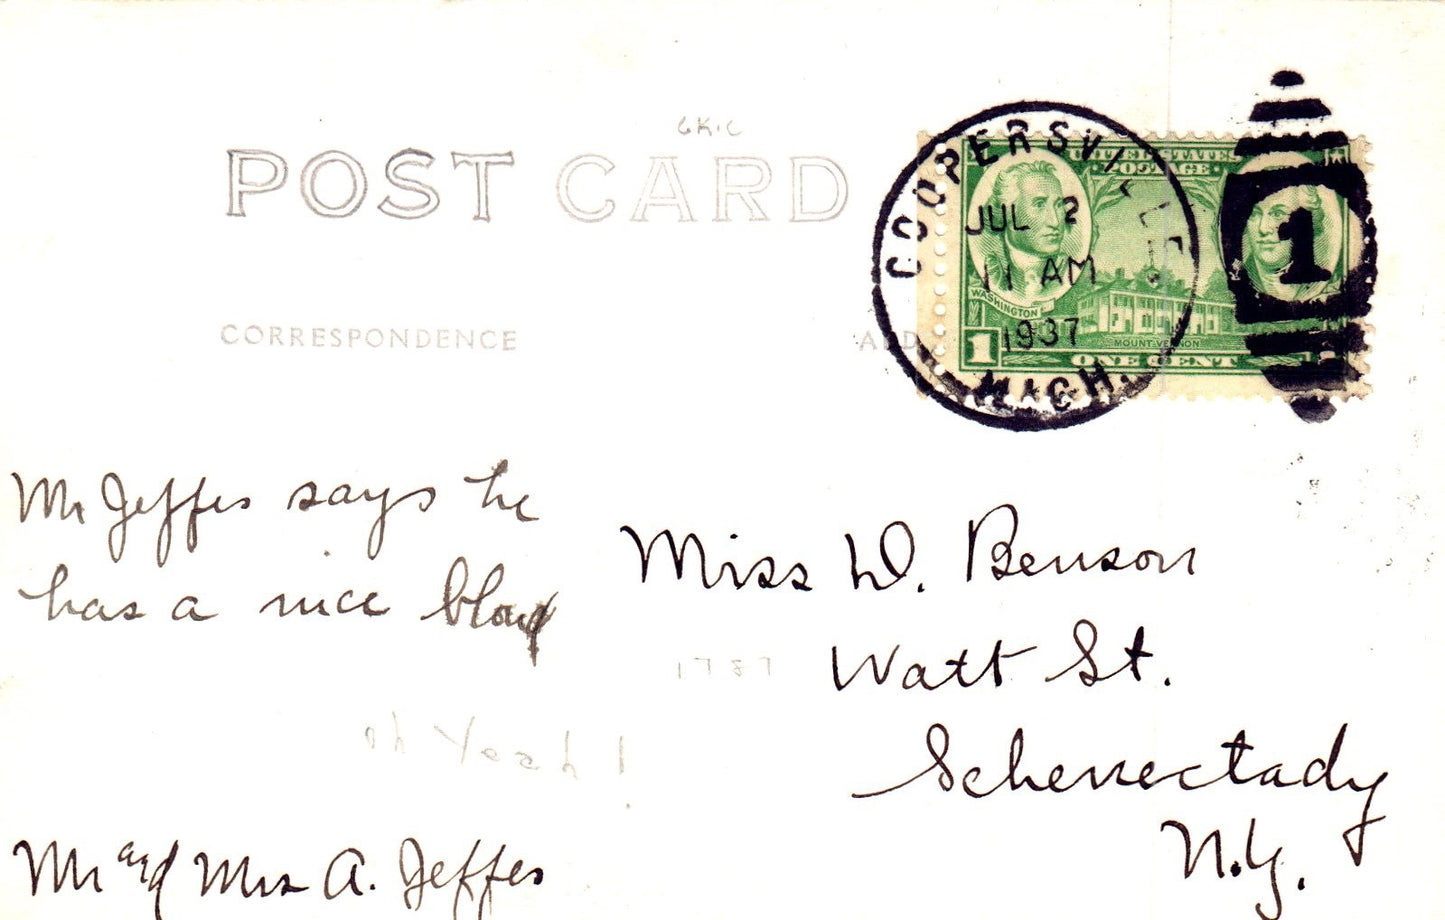 6K.C
POST CARD
COOPERSVILLE
JUL 2
11 AM
1937
MICH.
UNITED STATES
POSTAGE
WASHINGTON
MOUNT VERNON
1 ONE CENT
1
CORRESPONDENCE
Mr Jeffes says he
has a nice
Miss W. Benson
Watt St.
Schenectady
N.Y.
1787
Oh Yeah!
Mr and Mrs A. Jeffes